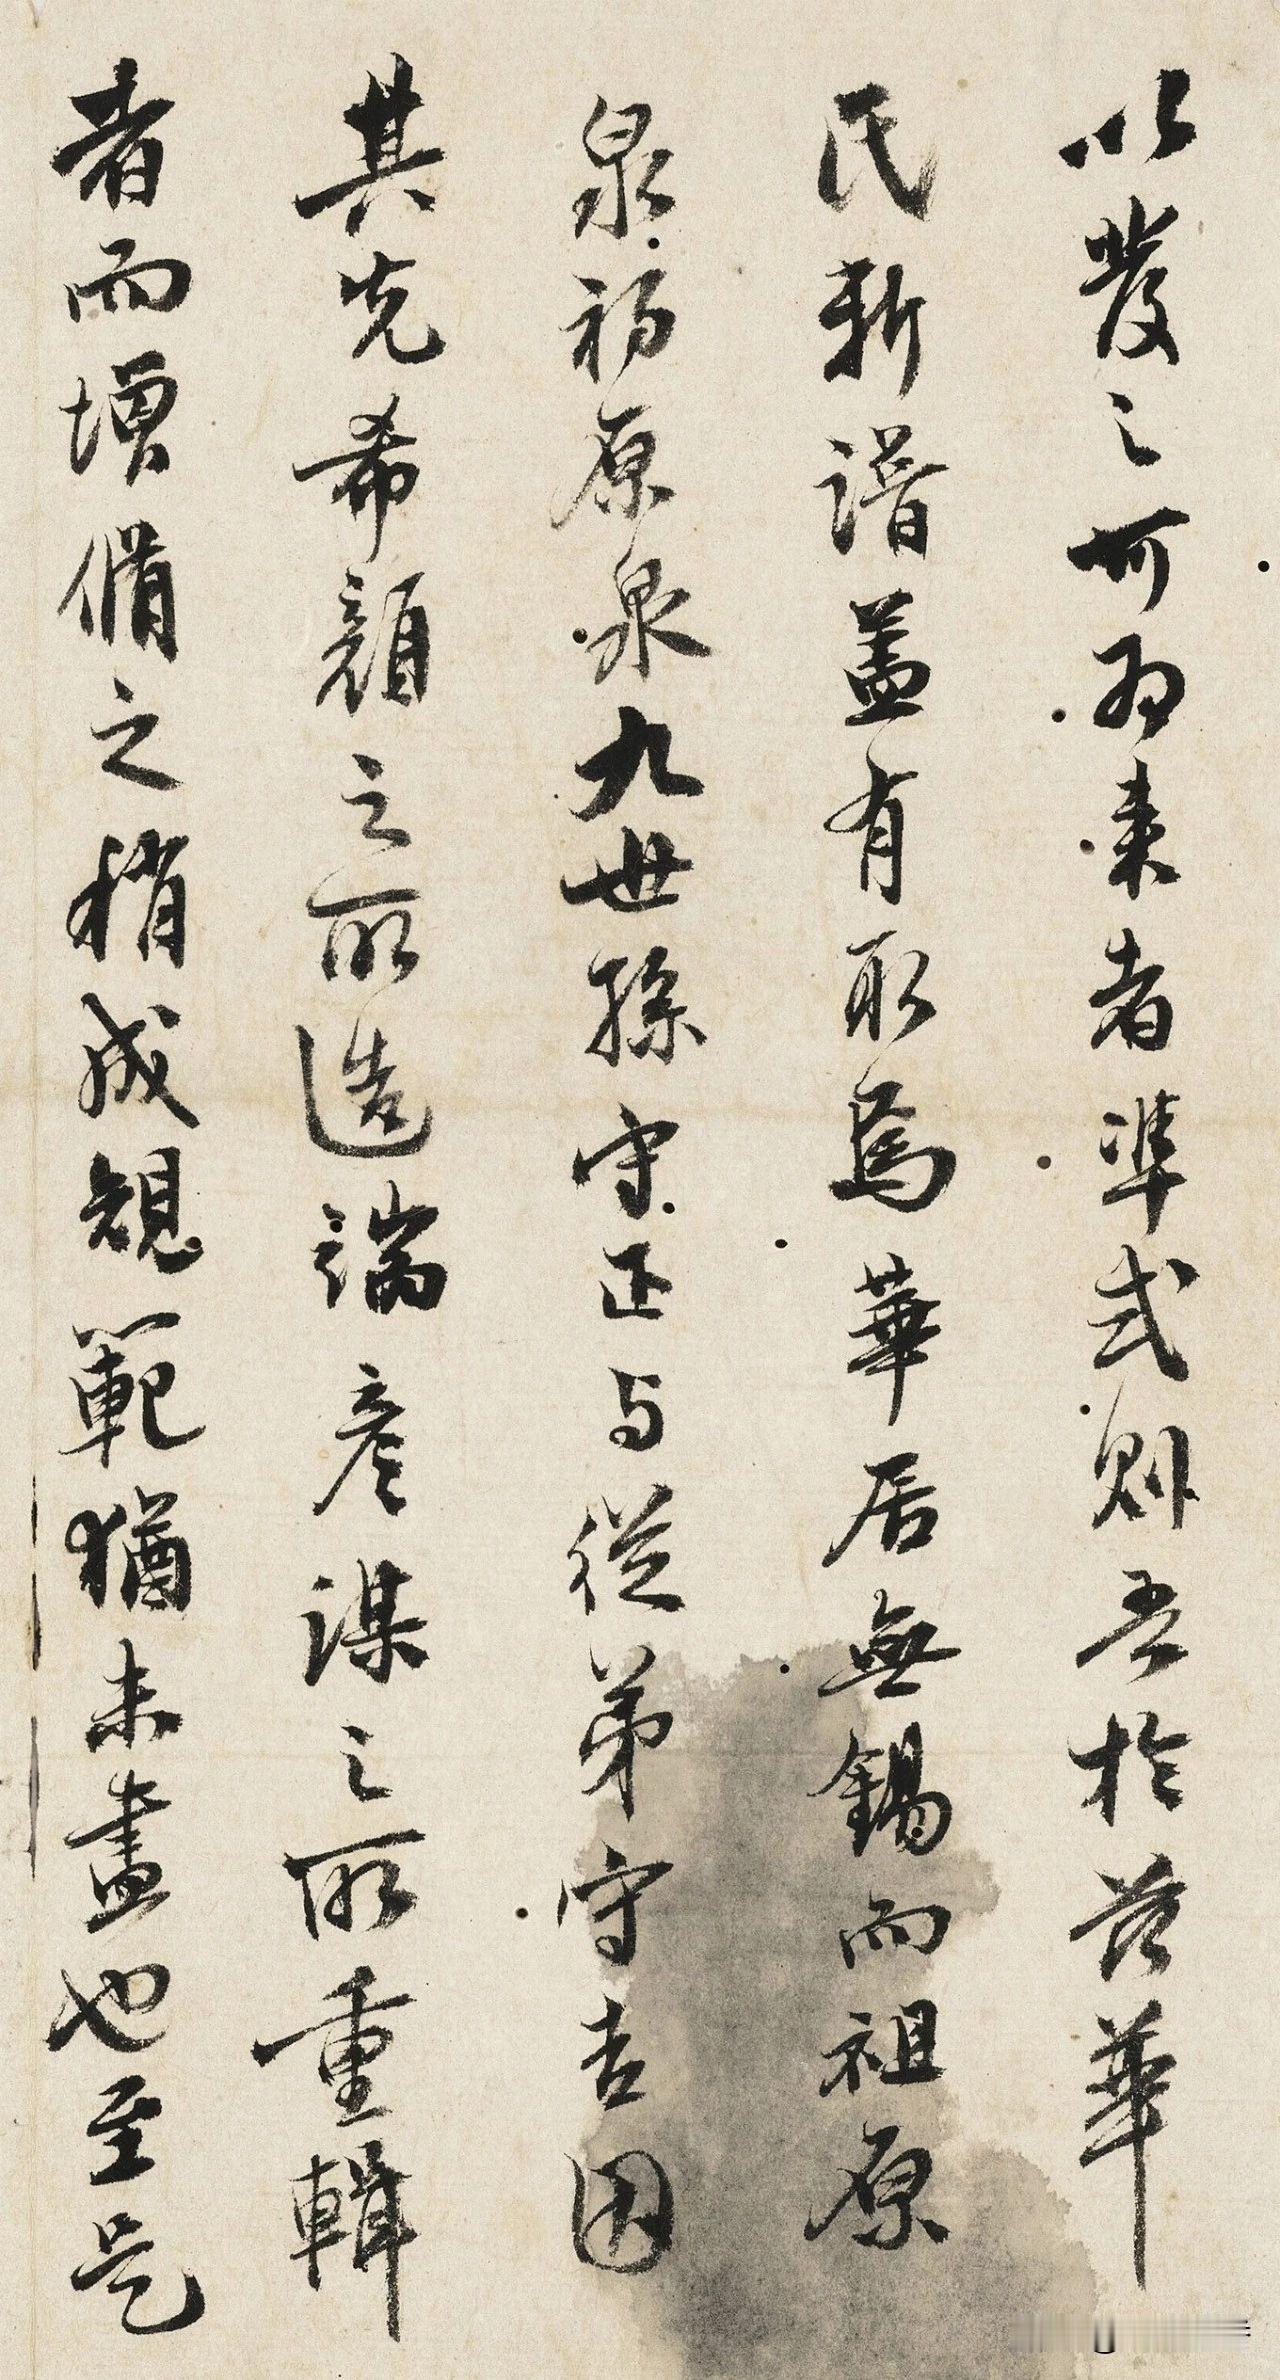 以發之可為來者準式則吾於茲華
氏新譜蓋有取焉華居無錫而祖原
泉初原泉九世孫守正与從弟守吉因
其先希顏之所造端彥謀之所重輯
者而增脩之稍成規範猶未盡也至是